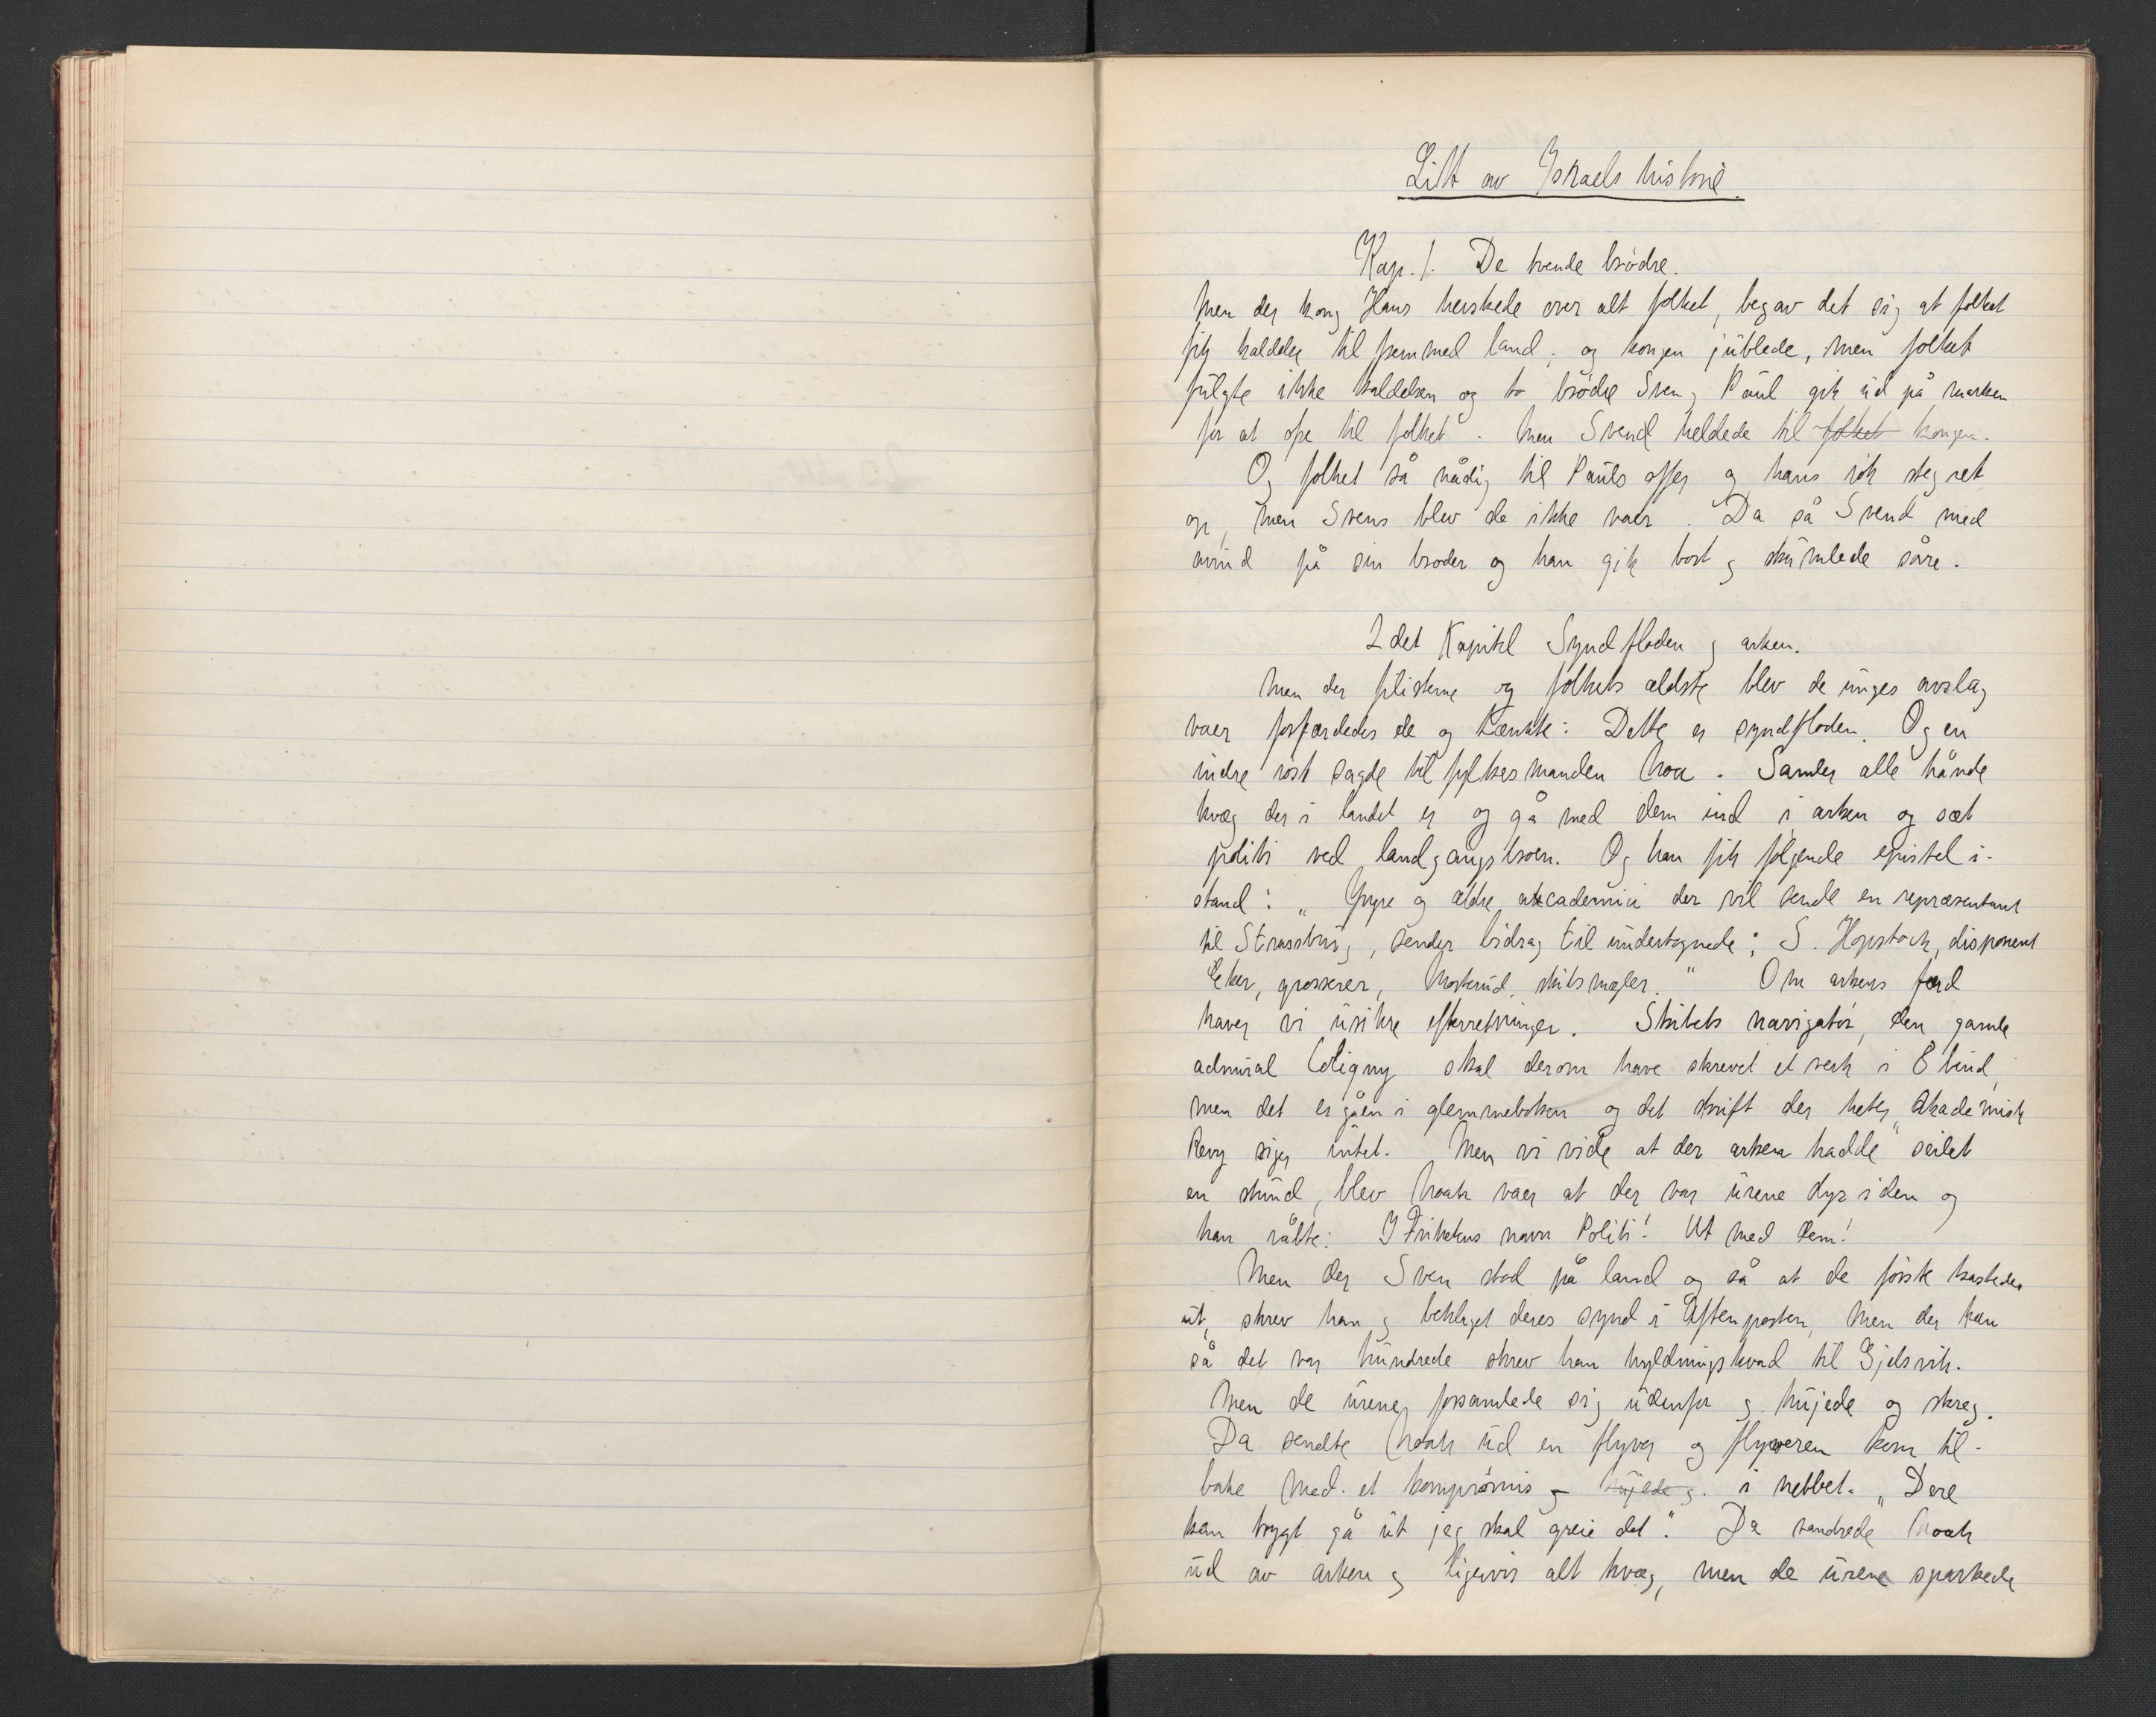 Litt av Israels historie.
Kap. 1. De tvende brödre.
Men der kong Hans herskede over alt folket, begav det sig at folket
fik kaldelse til fremmed land, og kongen jublede, men folket
fulgte ikke kaldelsen og to brödre Sven og Paul gik ud på marken
for at ofre til folket. Men Svend heldede til folket kongen.
Og folket så nådig til Pauls offer og hans rök steg ret
op, men Svens blev de ikke vaer. Da så Svend med
avind på sin broder og han gik bort og skumlede såre.
2det Kapitel Syndfloden og arken.
Men der filistrene og folkets ældste blev de unges avslag
vaer forfærdedes de og tænkte: Dette er syndfloden. Og en
indre röst sagde til fylkesmanden Noa. Samler alle hånde
kvæg der i landet er og gå med dem ind i arken og sæt
politi ved landgangsbroen. Og han fik følgende epistel i-
stand: "Yngre og ældre akcademici der vil sende en repræsentant
til Strassburg, sender bidrag til undertegnede: S. Hopstock, disponent
Eker, grosserer, Moskrud, skibsmægler." Om arkens færd
haver vi usikre efterretninger. Skibets navigatör, den gamle
admiral Coligny skal derom have skrevet et verk i 8 bind,
men det er gåen i glemmeboken og det skrift der heter "Akademisk
Revy" siger intet. Men vi vide at der arken hadde seilet
en stund, blev Noah vaer at der var urene dyr i den og
han råbte: I Frihetens navn Politi! Ut med dem!
Men der Sven stod på land og så at de förste kastedes
ut, skrev han og beklaget deres synd i Aftenposten, men der han
så det var hundrede skrev han hyldningskvad til Gjelsvik.
Men de urene forsamlede sig udenfor og hujede og skreg.
Da sendte Noah ud en flyver og flyveren kom til-
bake med et kompromis og hujede og. i nebbet. "Dere
kan trygt gå ut jeg skal greie det". Da vandrede Noah
ud av arken og ligervis alt kvæg, men de urene sparkede